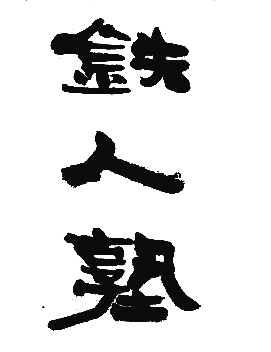 鉄
人
塾